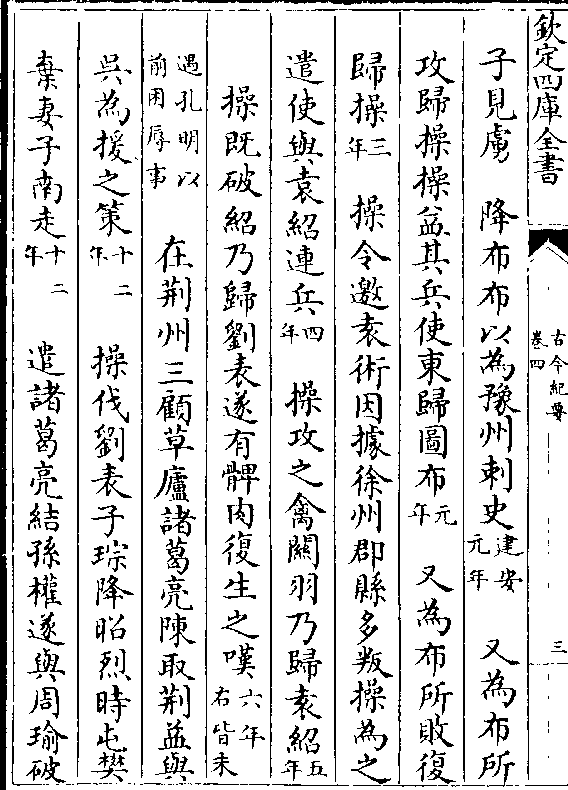 欽定四庫全書
古今紀要
卷四
三
子見虜　降布布以為豫州刺史建安元年　又為布所
攻歸操操益其兵使東歸圖布元年　又為布所敗復
歸操三年　操令邀袁術因據徐州郡縣多叛操為之
遣使與袁紹連兵四年　操攻之禽關羽乃歸袁紹五年
操既破紹乃歸劉表遂有髀肉復生之嘆六年右皆未
遇孔明以前困辱事　在荆州三顧草廬諸葛亮陳取荆益與
吳為援之策十二年　操伐劉表子琮降昭烈時屯樊
棄妻子南走十二年　遣諸葛亮結孫權遂與周瑜破